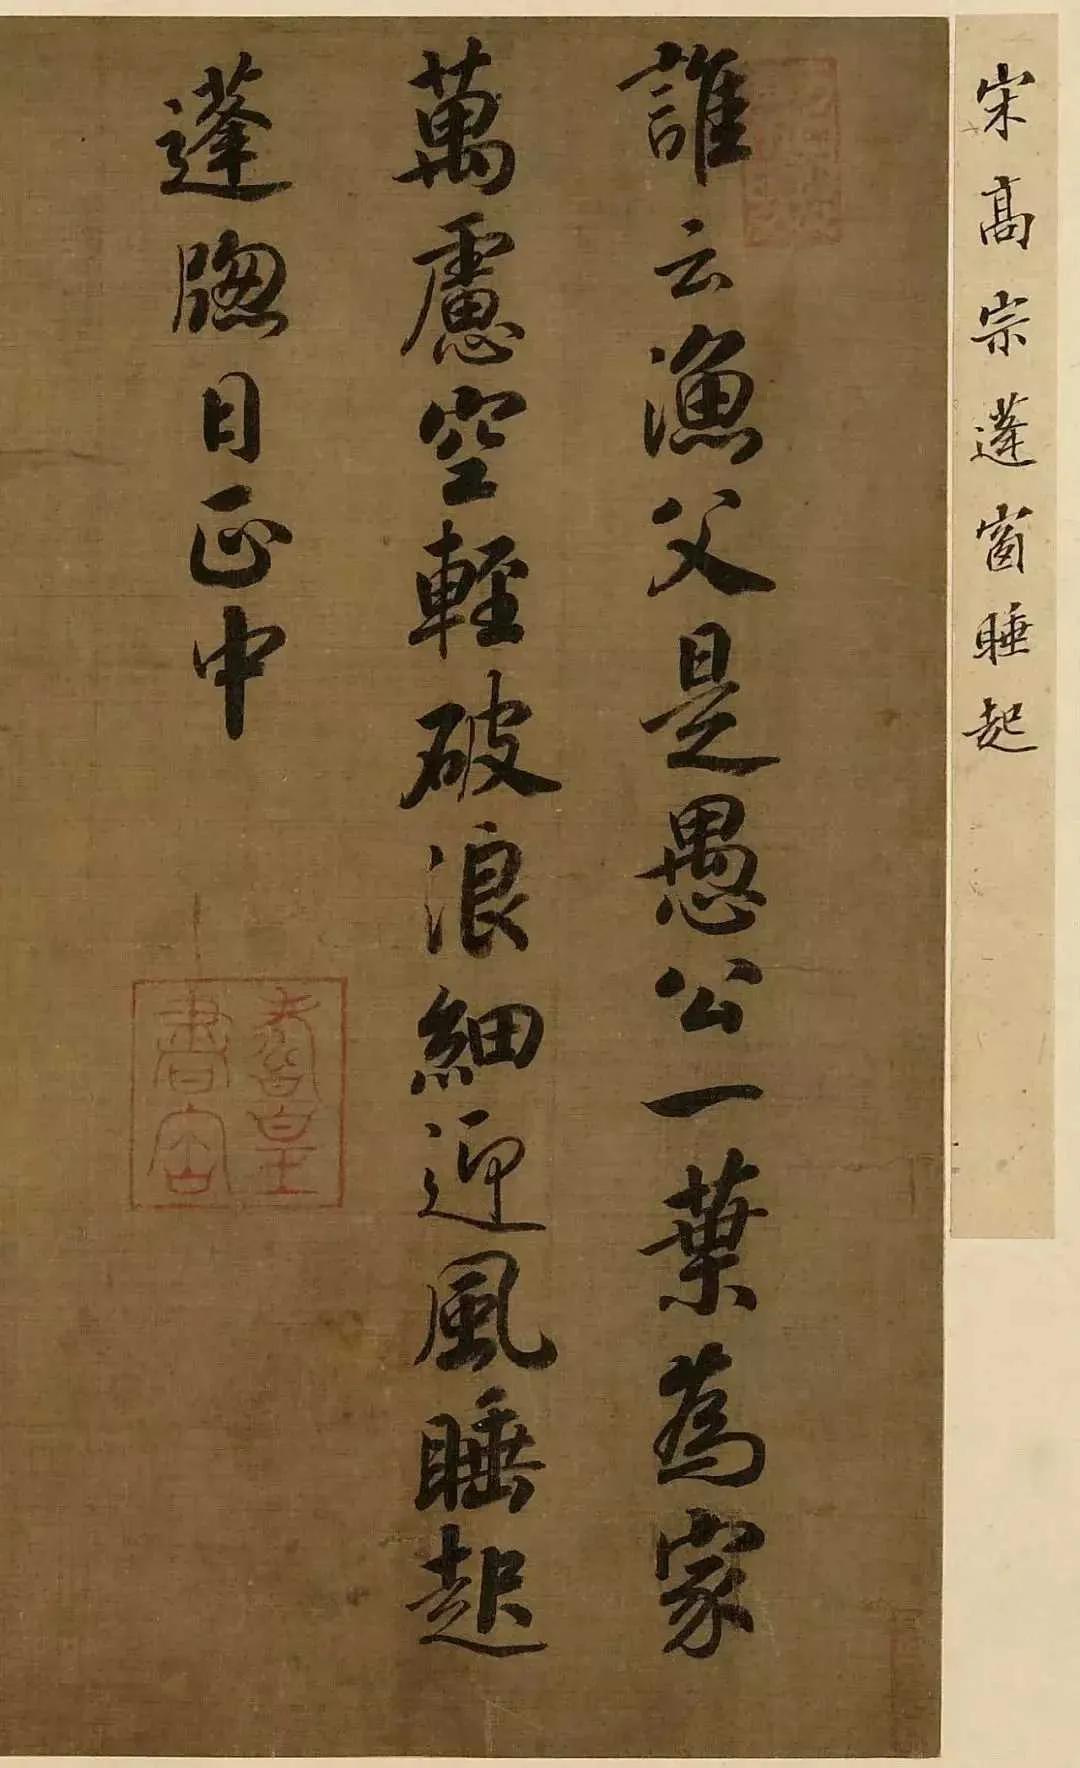 宋高宗蓬窗睡起
誰云漁父是愚公一葉為家
萬慮空輕破浪細迎風睡起
蓬牕日正中
壽皇
書寶